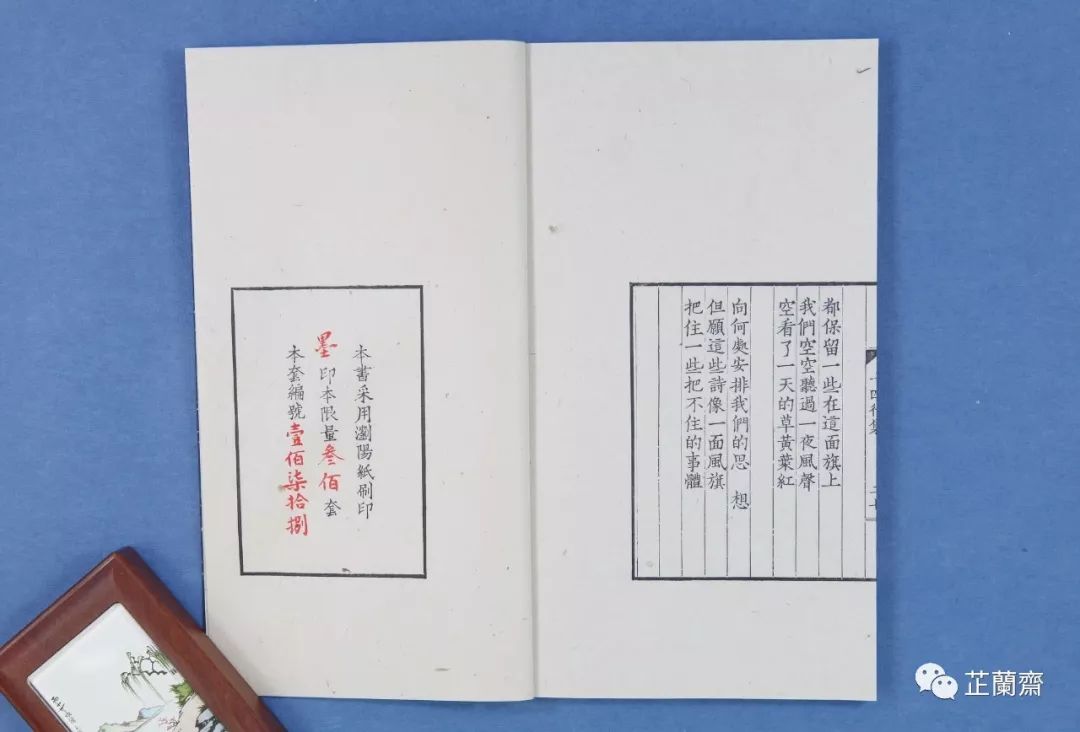 十四行集
都保留一些在這面旗上
我們空空聽過一夜風聲
空看了一天的草黃葉紅
向何處安排我們的思 想
但願這些詩像一面風旗
把住一些把不住的事體
本書采用瀏陽紙刷印
墨印本限量叁佰套
本套編號壹佰柒拾捌
芷蘭齋